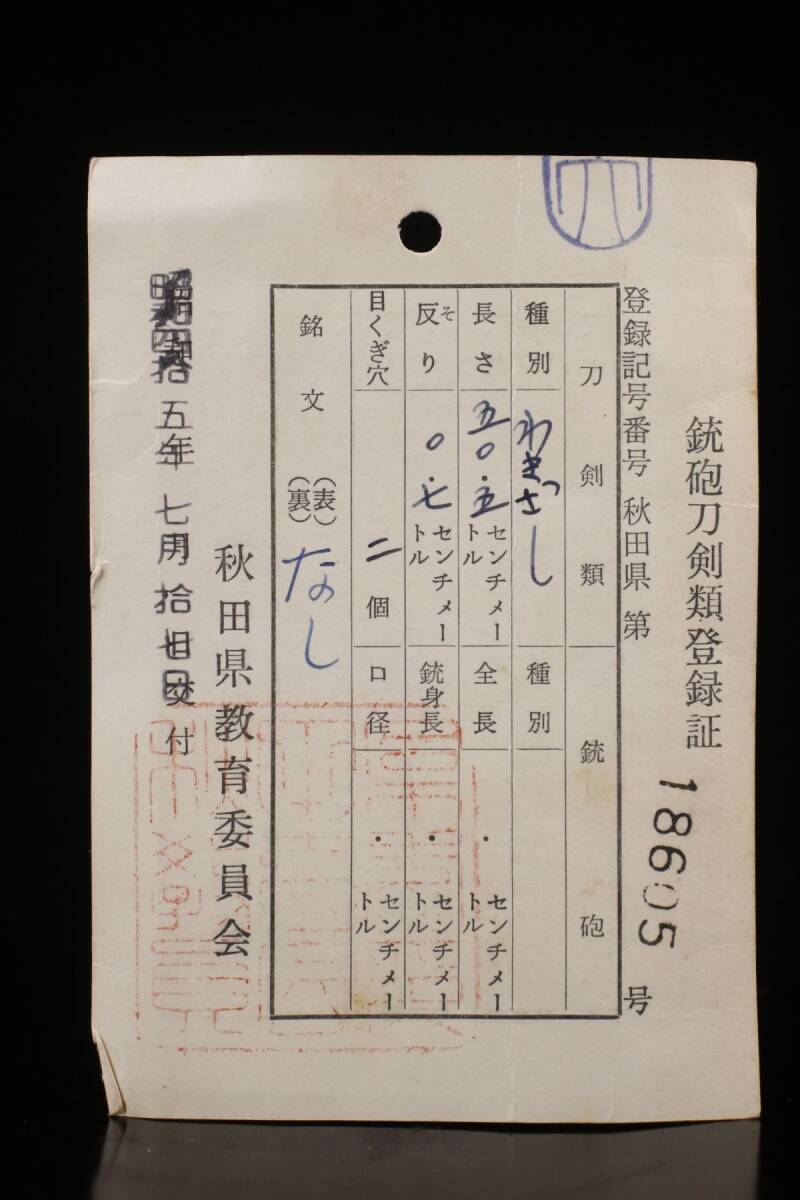 銃砲刀剣類登録証
登録記号番号 秋田県 第 18605 号
刀剣類
種別 わきざし
長さ 五〇・五 センチメートル
反り そ 〇・七 センチメートル
目くぎ穴 二 個
銘文 (表) (裏) なし
銃砲
種別
全長 ・ センチメートル
銃身長 ・ センチメートル
口径 ・ センチメートル
秋田県教育委員会
昭和四拾五年七月拾七日交付